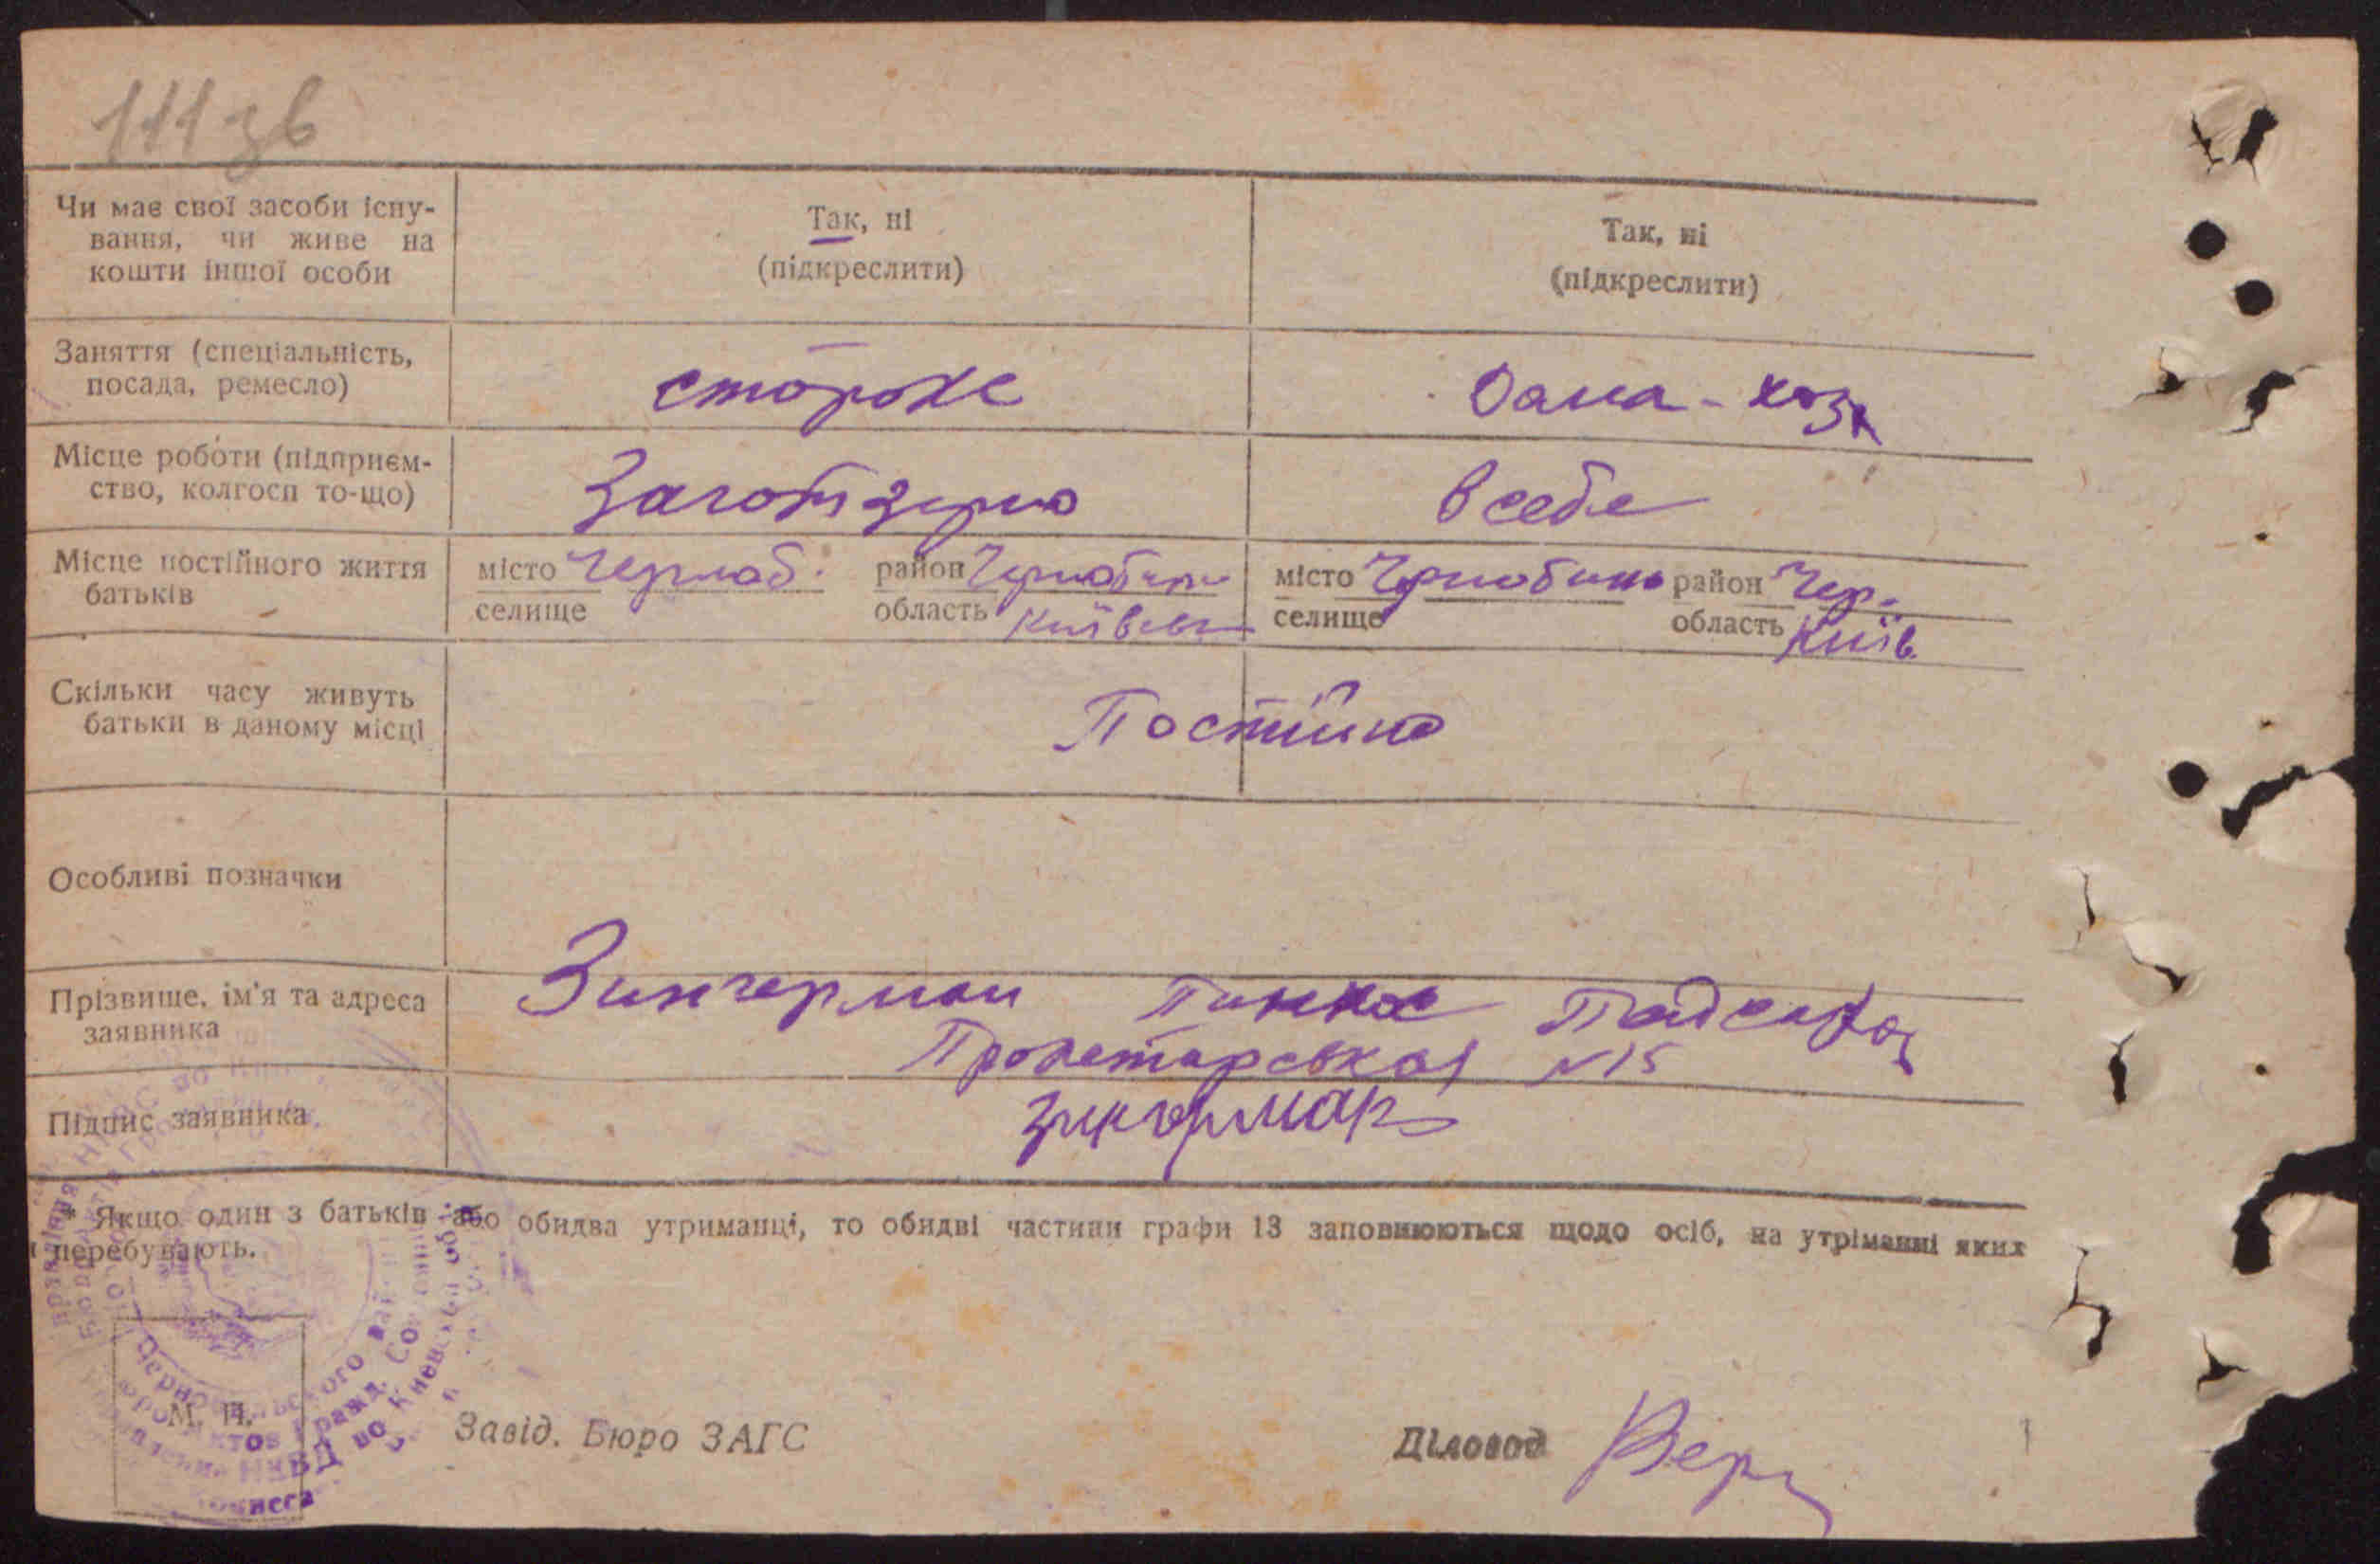 111 зв
Чи має свої засоби існу-
вання, чи живе на
кошти іншої особи
Так, ні
(підкреслити)
Так, ні
(підкреслити)
Заняття (спеціальність,
посада, ремесло)
сторож
дома-хозя
Місце роботи (підприєм-
ство, колгосп то-що)
Заготзерно
в себе
Місце постійного життя
батьків
місто Черноб. район
селище область
місто Чернобиль район Чер.
селище область Київ.
Скільки часу живуть
батьки в даному місці
Постійно
Особливі позначки
Прізвище, ім'я та адреса
заявника
Зингерман Пинхос
Пролетарская №15
Підпис заявника
Зингерман
* Якщо один з батьків або обидва утриманці, то обидві частини графи 13 заповнюються щодо осіб, на утріманні яких
перебувають.
М. П.
Завід. Бюро ЗАГС
Діловод